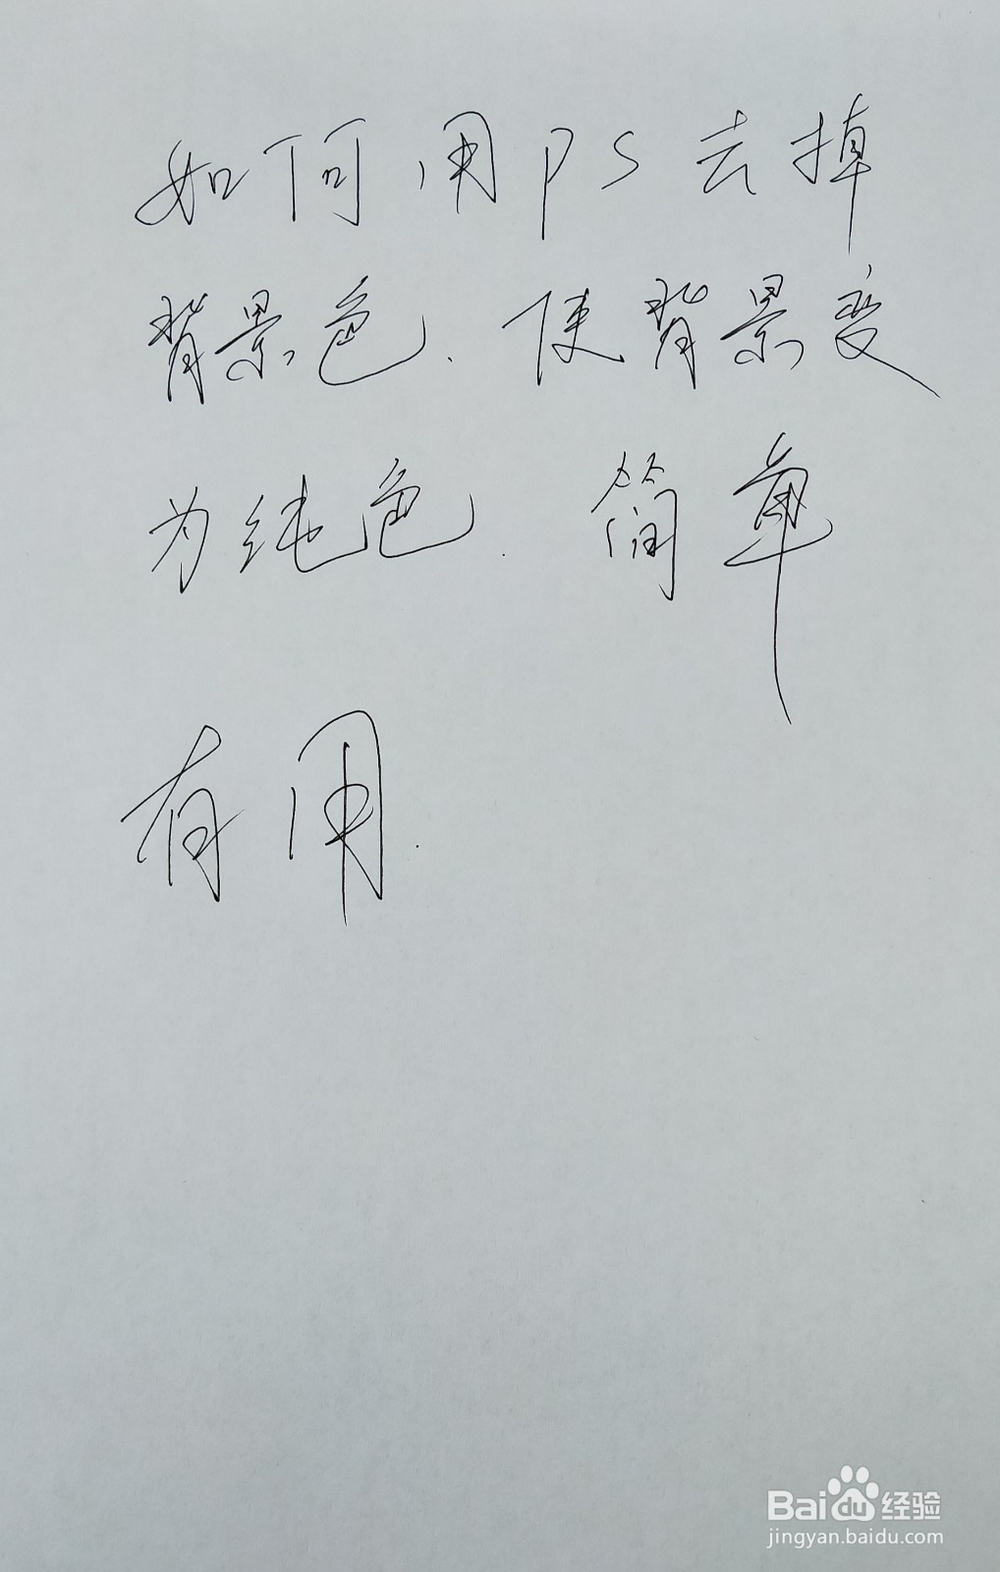 如何用PS去掉
背景色.使背景变
为纯色.简单
有用.
Baidu经验
jingyan.baidu.com